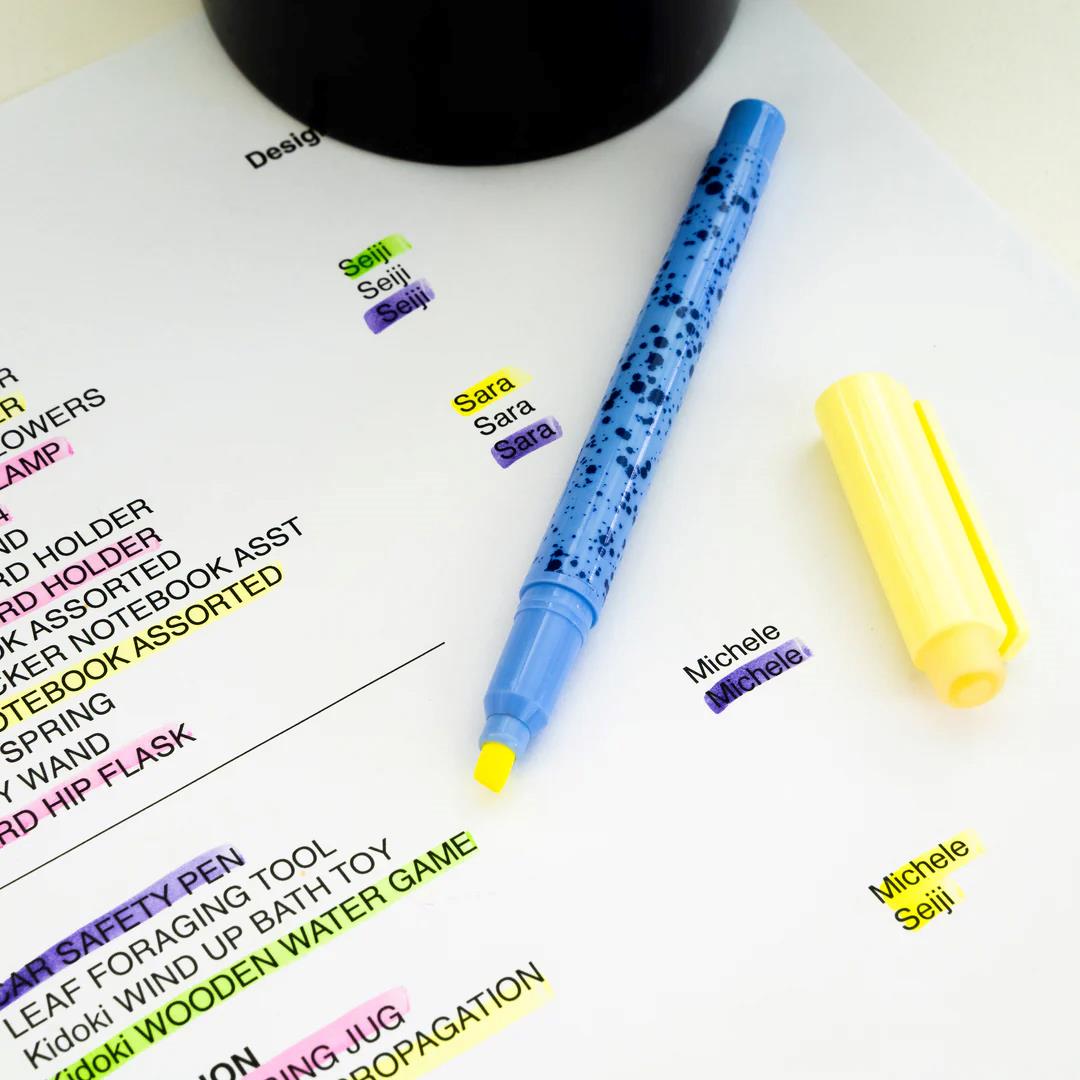 Desig
Seiji
Seiji
Seiji
Sara
Sara
Sara
Michele
Michele
Michele
Seiji
R
ER
LOWERS
LAMP
4
ND
RD HOLDER
RD HOLDER
OK ASSORTED
CKER NOTEBOOK ASST
OTEBOOK ASSORTED
SPRING
Y WAND
RD HIP FLASK
CAR SAFETY PEN
LEAF FORAGING TOOL
Kidoki WIND UP BATH TOY
Kidoki WOODEN WATER GAME
ION
RING JUG
PROPAGATION